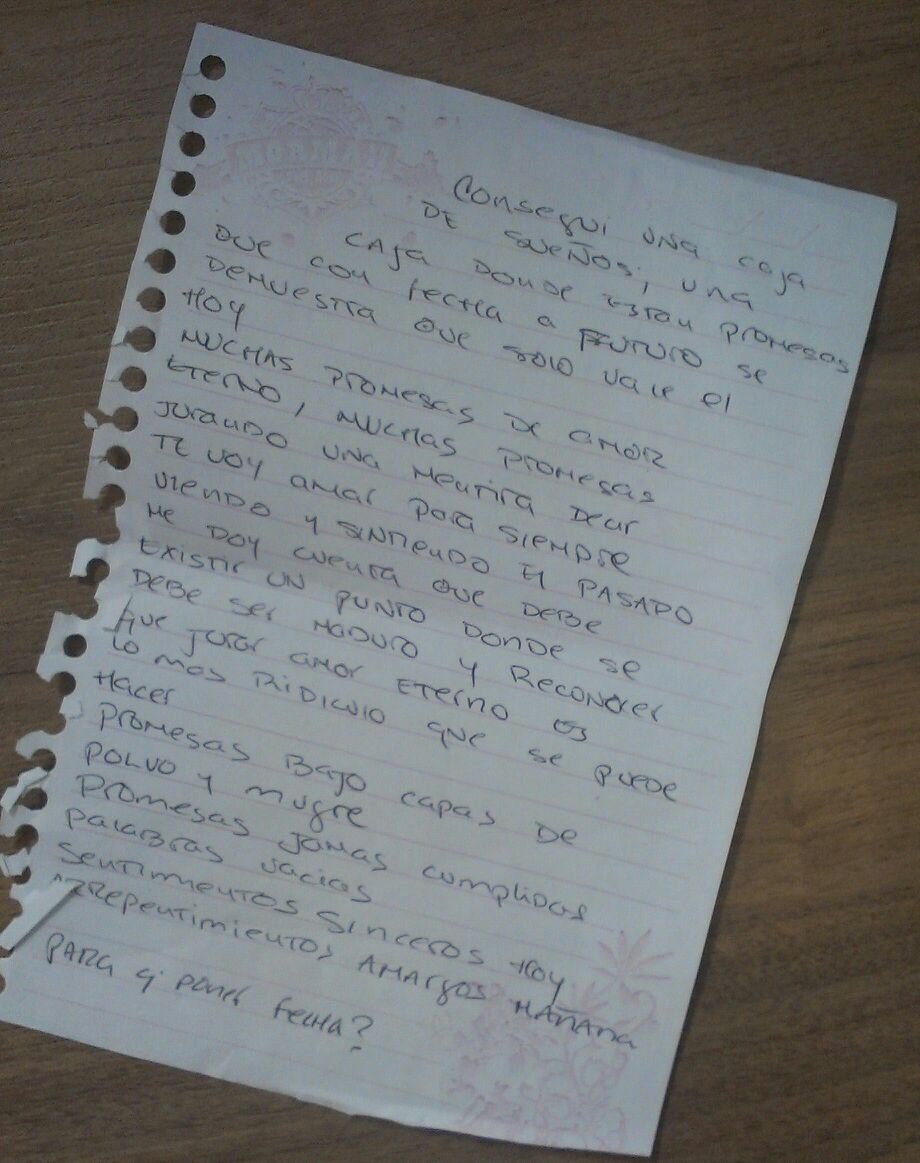 NORMA
Conseguí una caja
DE SUEÑOS, una
CAJA DONDE ESTAN PROMESAS
QUE CON FECHA A FUTURO SE
DEMUESTRA QUE SOLO VALE El
HOY
MUCHAS PROMESAS DE AMOR
ETERNO, MUCHAS PROMESAS
JURANDO UNA MENTIRA DECIR
TE VOY AMAR PARA SIEMPRE
VIENDO Y SINTIENDO El PASADO
ME DOY CUENTA QUE DEBE
EXISTIR UN PUNTO DONDE SE
DEBE SER MADURO Y RECONOCER
que JURAR AMOR ETERNO ES
LO MAS RIDICULO QUE SE PUEDE
HACER
PROMESAS BAJO CAPAS DE
POLVO Y MUGRE
PROMESAS JAMAS CUMPLIDAS
PALABRAS VACIAS
SENTIMIENTOS SINCEROS HOY
ARREPENTIMIENTOS AMARGOS MAÑANA
PARA q' PONER FECHA?